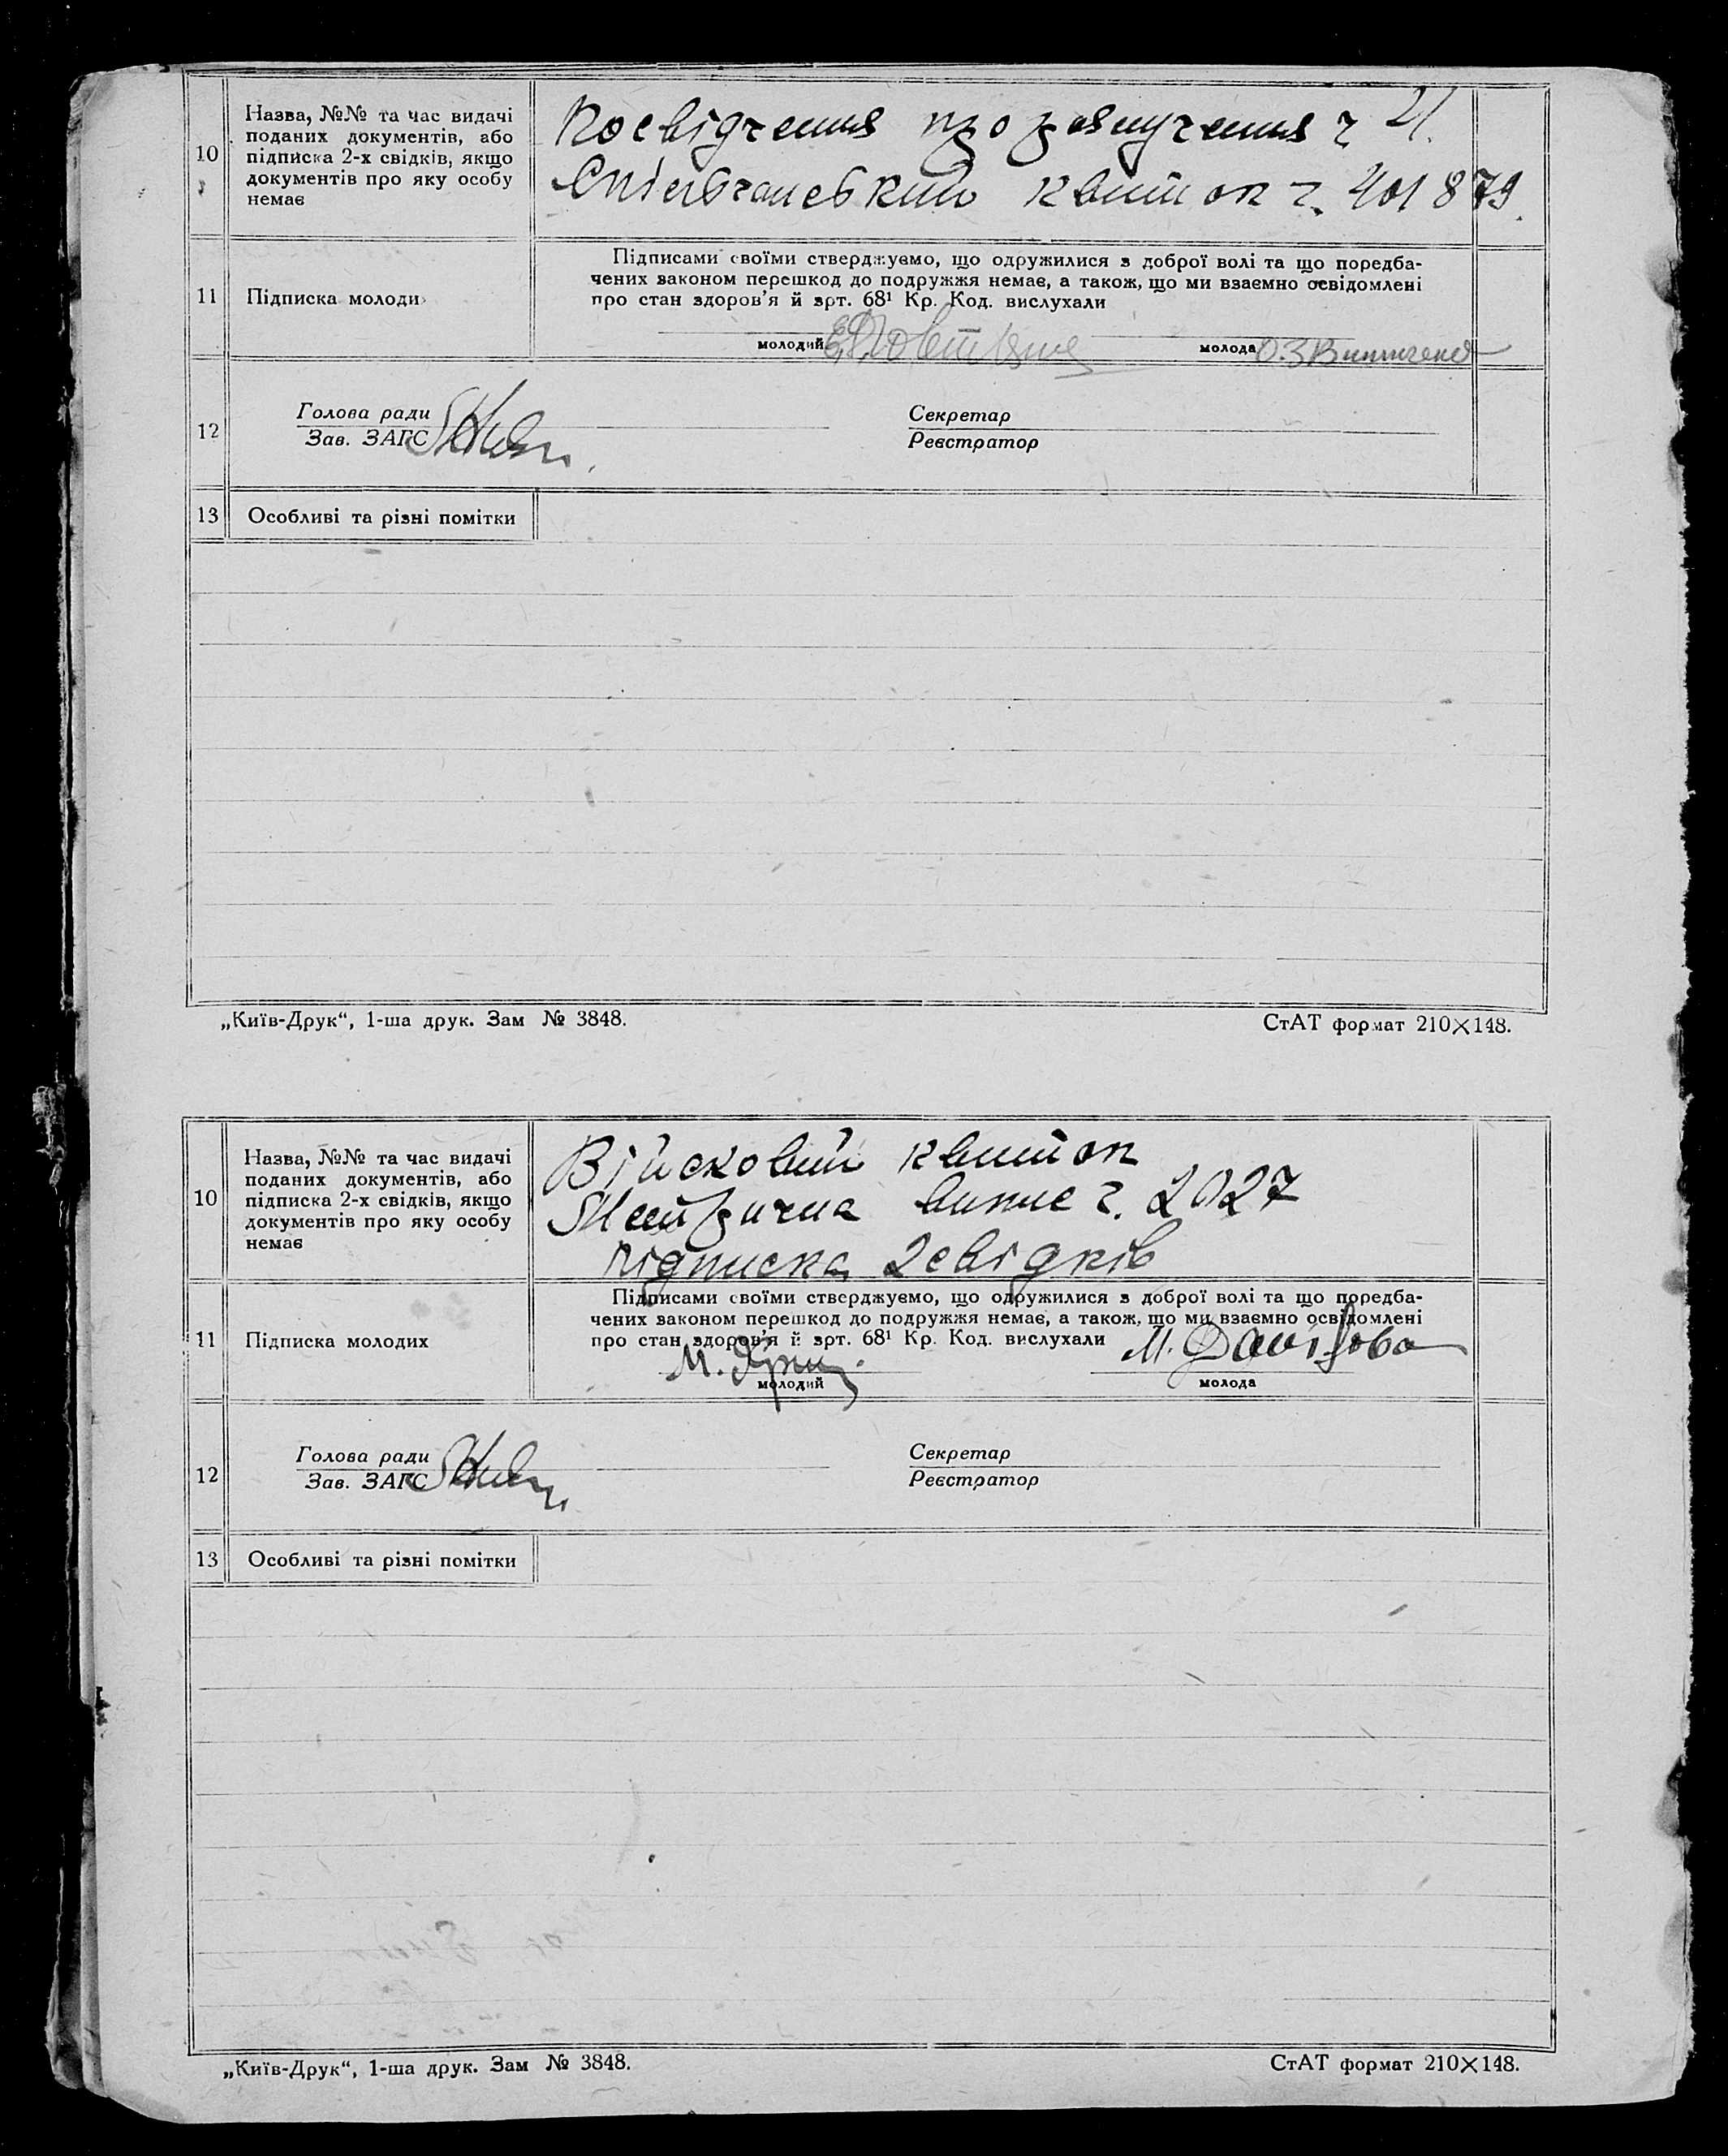 10
Назва, №№ та час видачі
поданих документів, або
підписка 2-х свідків, якщо
документів про яку особу
немає
Посвідчення про розлучення ч 21.
Спілчанський квиток ч. 401879.
11
Підписка молоди
Підписами своїми стверджуємо, що одружилися з доброї волі та що поредба-
чених законом перешкод до подружжя немає, а також, що ми взаємно освідомлені
про стан здоров'я й арт. 68¹ Кр. Код. вислухали
молодий
молода О.З Винниченко
12
Голова ради
Зав. ЗАГС
Секретар
Реєстратор
13
Особливі та різні помітки
„Київ-Друк“, 1-ша друк. Зам № 3848.
СтАТ формат 210×148.
10
Назва, №№ та час видачі
поданих документів, або
підписка 2-х свідків, якщо
документів про яку особу
немає
Військовий квиток
Метрична випис ч. 2027
підписка 2 свідків
11
Підписка молодих
Підписами своїми стверджуємо, що одружилися з доброї волі та що поредба-
чених законом перешкод до подружжя немає, а також, що ми взаємно освідомлені
про стан здоров'я й арт. 68¹ Кр. Код. вислухали
М.
М.
молодий
молода
12
Голова ради
Зав. ЗАГС
Секретар
Реєстратор
13
Особливі та різні помітки
„Київ-Друк“, 1-ша друк. Зам № 3848.
СтАТ формат 210×148.